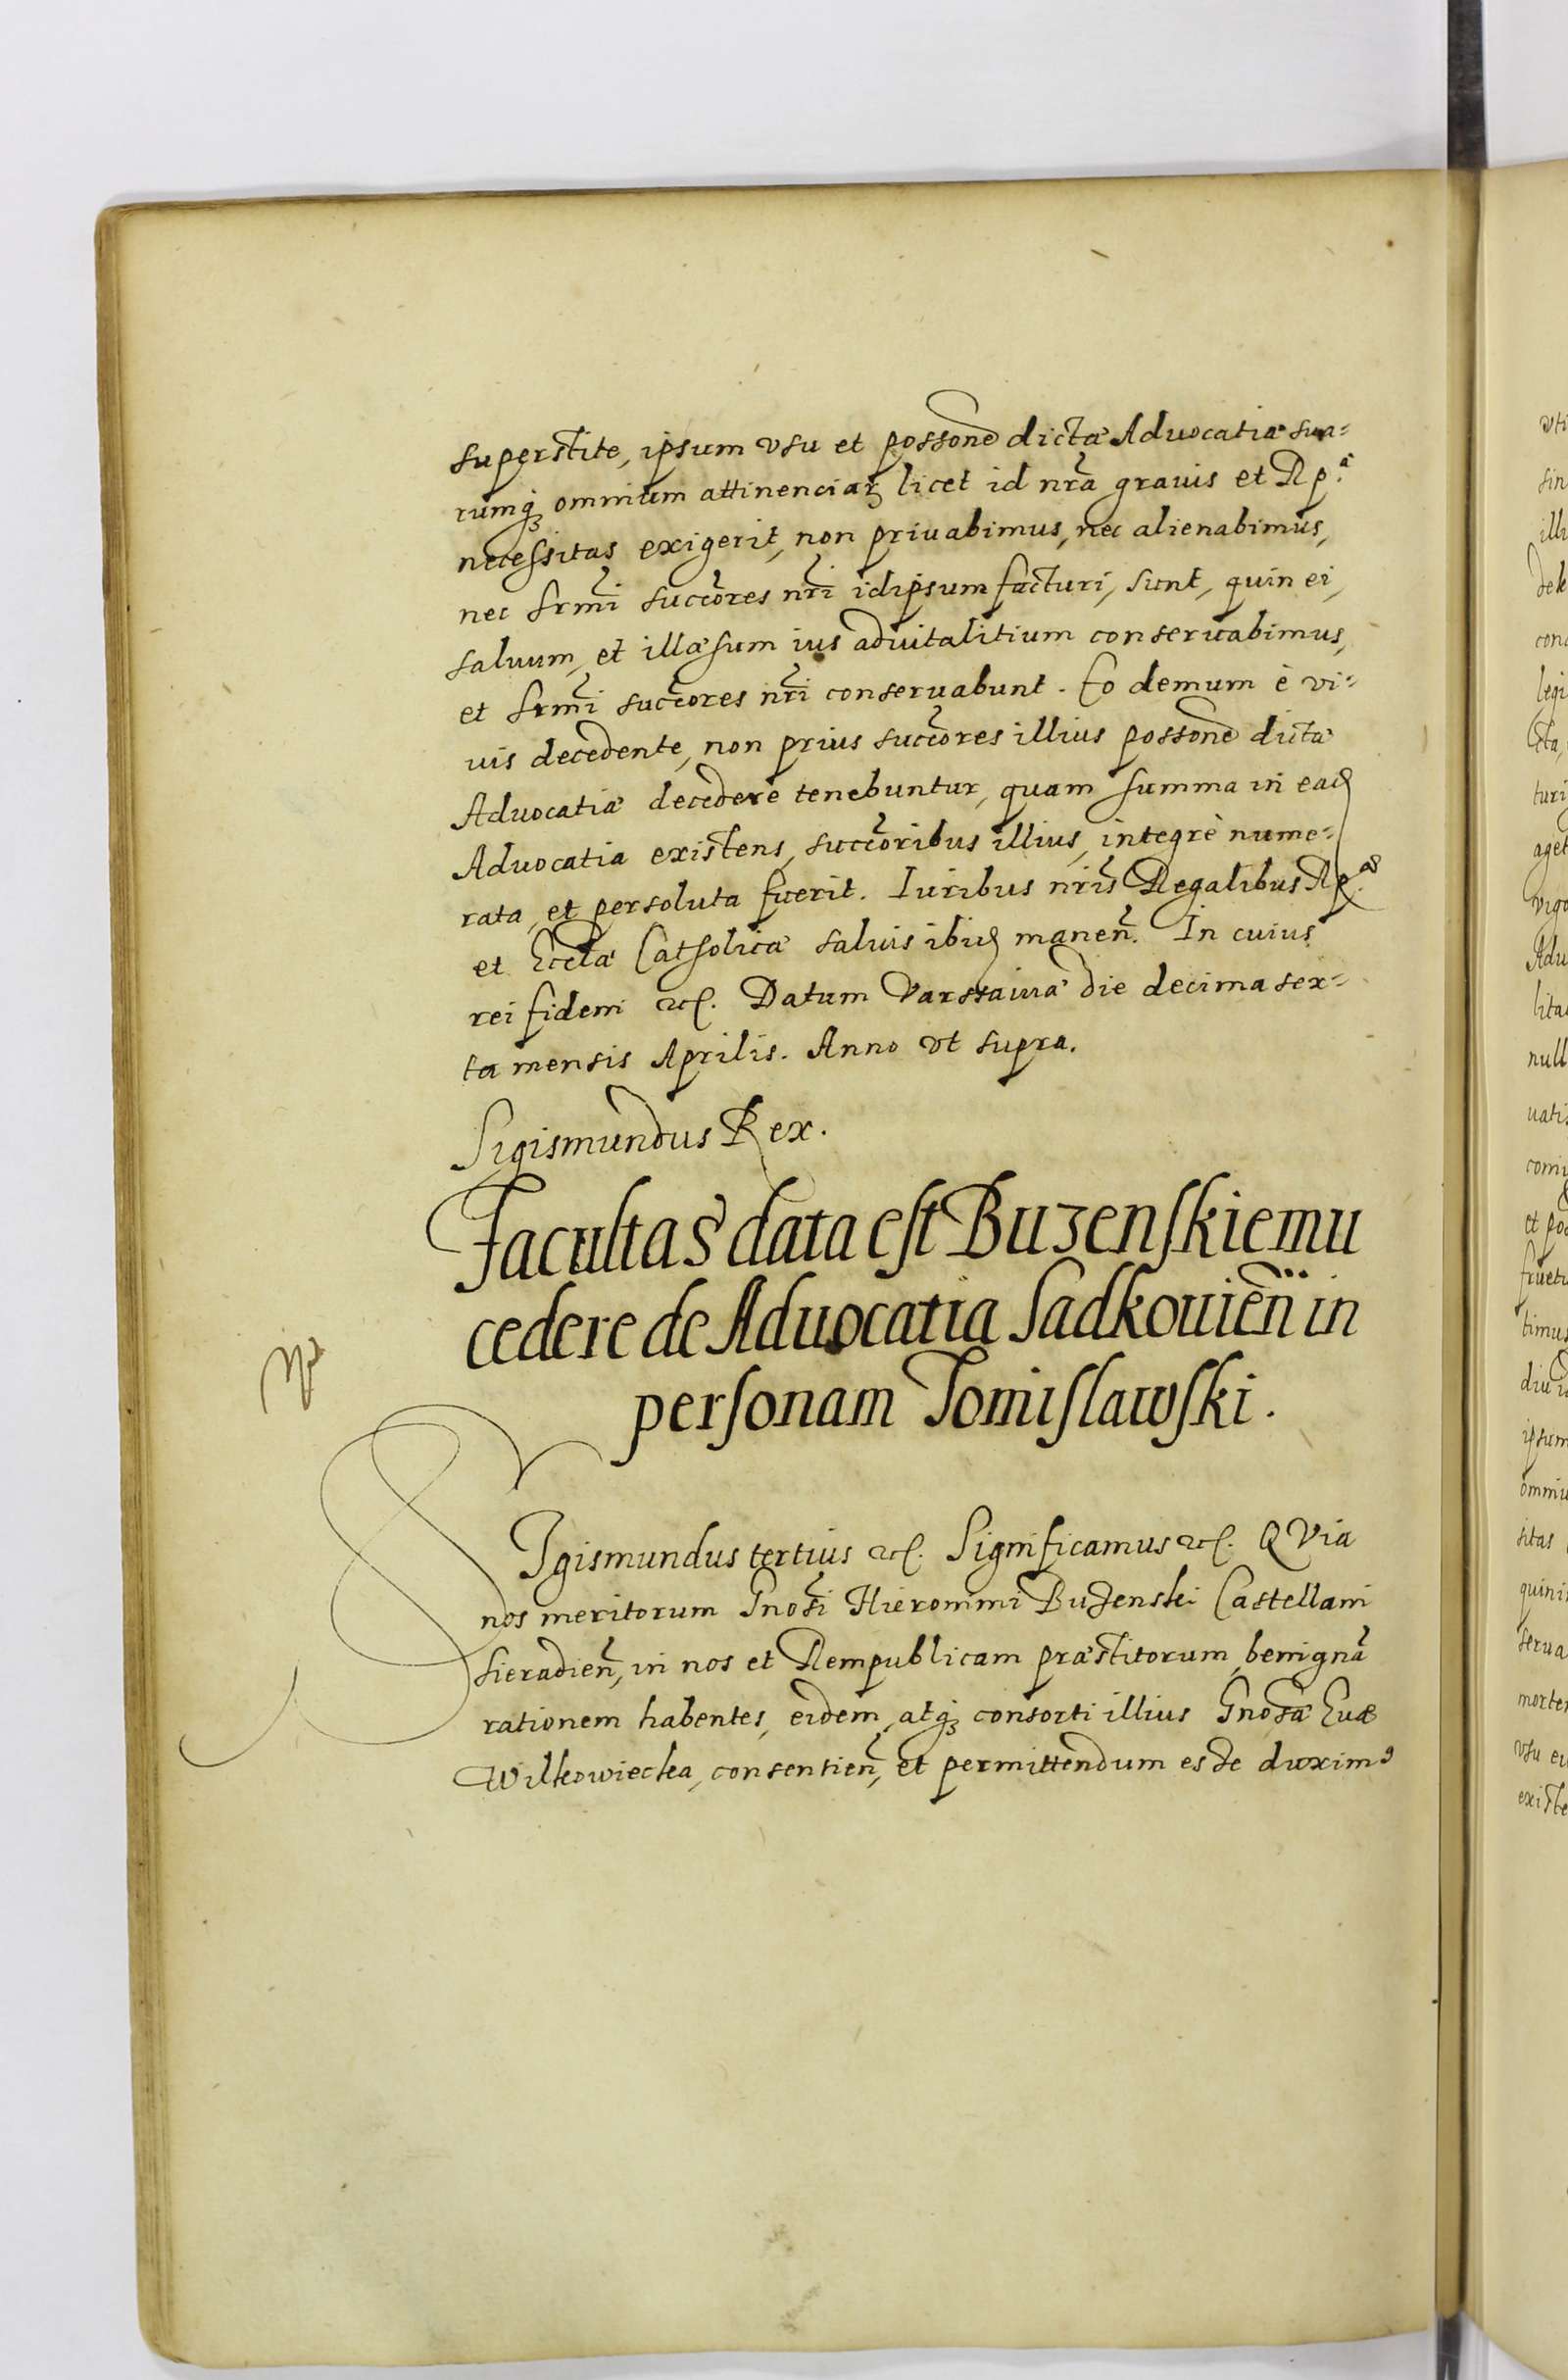 superstite, ipsum vsu et possone dictæ Aduocatiæ sua=
rumq3 omnium attinenciarꝫ licet id nra grauis et Rp.a
necessitas exigerit, non priuabimus, nec alienabimus,
nec srmi succores nri idipsum facturi, sunt, quin ei,
saluum, et illæsum ius aduitalitium conseruabimus,
et srmi succores nri conseruabunt. Eo demum è vi=
uis decedente, non prius succores illius possone dictæ
Aduocatiæ decedere tenebuntur, quam summa in ead
Aduocatia existens, succoribus illius, integrè nume=
rata, et persoluta fuerit. Iuribus nris Regalibus Rp.æ
et Eccla Catholicæ saluis ibid manen. In cuius
rei fidem etc. Datum Varssauiæ die decima sex=
ta mensis Aprilis. Anno vt supra.
Sigismundus Rex.
Facultas data est Buzenskiemu
cedere de Aduocatia Sadkouien in
personam Tomislawski.
SIgismundus tertius etc. Significamus etc. QVia
nos meritorum Gnosi Hieronimi Buzenski Castellani
Sieradien, in nos et Rempublicam præstitorum, benigna
rationem habentes, eidem, atq3 consorti illius Gnosæ Euæ
Wilkowiecka, consentien, et permittendum esse duxim9